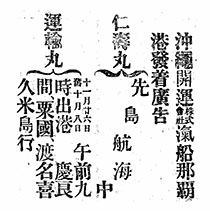 沖繩開運株式會社汽船那覇
港發着廣告
仁壽丸 先島航海中
運輸丸 十一月廿六日
舊十月八日 午前九
時出港 慶良
間粟國 渡名喜
久米島行